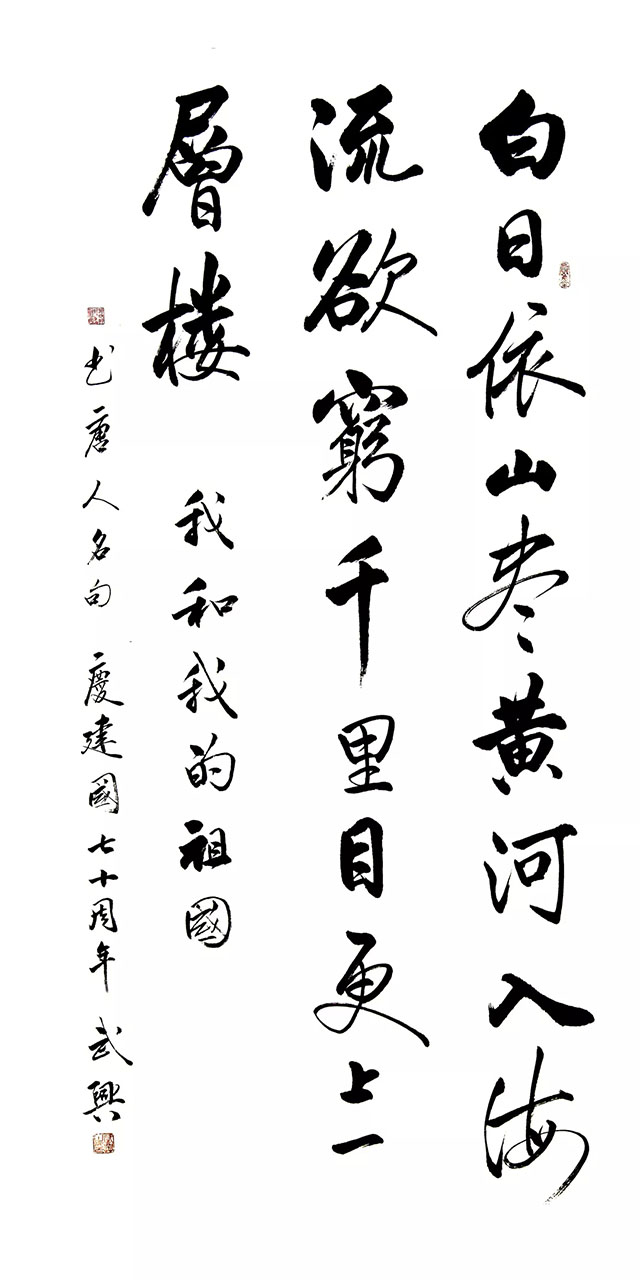 白日依山尽黄河入海
流欲窮千里目更上一
層楼
我和我的祖國
书唐人名句 慶建國七十周年 武興